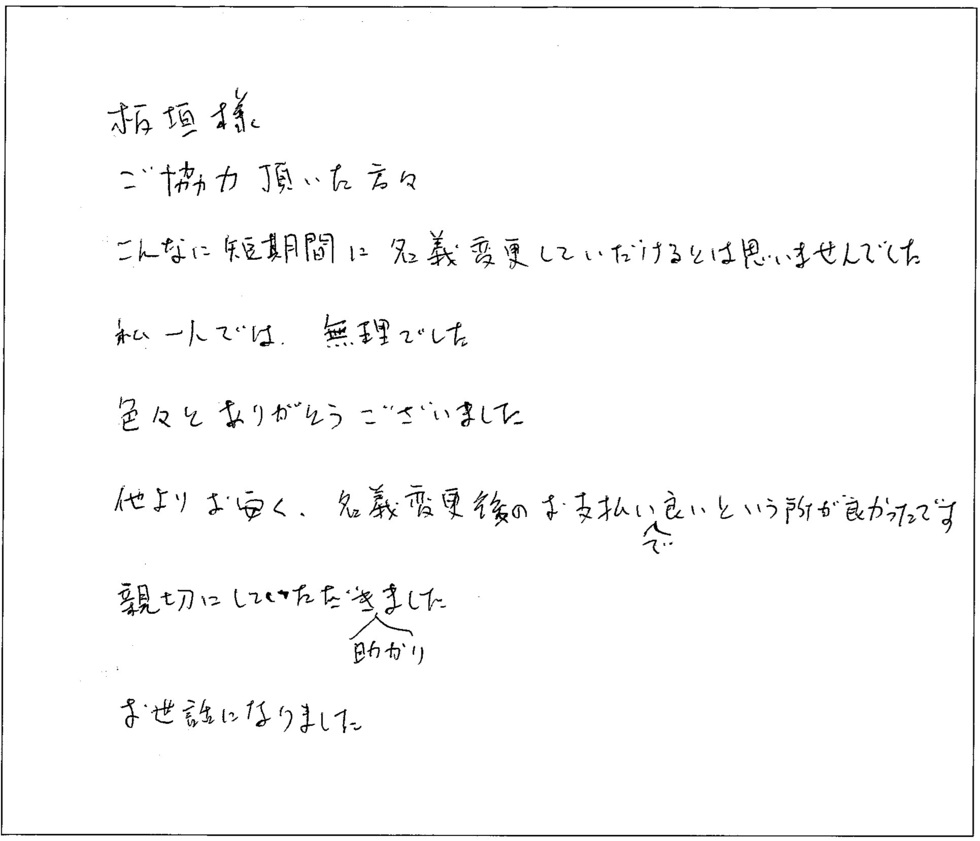 板垣様
ご協力頂いた方々
こんなに短期間に名義変更していだけるとは思いませんでした
私一人では、無理でした
色々とありがとうございました
他よりお安く、名義変更後のお支払い良いという所が良かったです
で
親切にしていただきました
助かり
お世話になりました